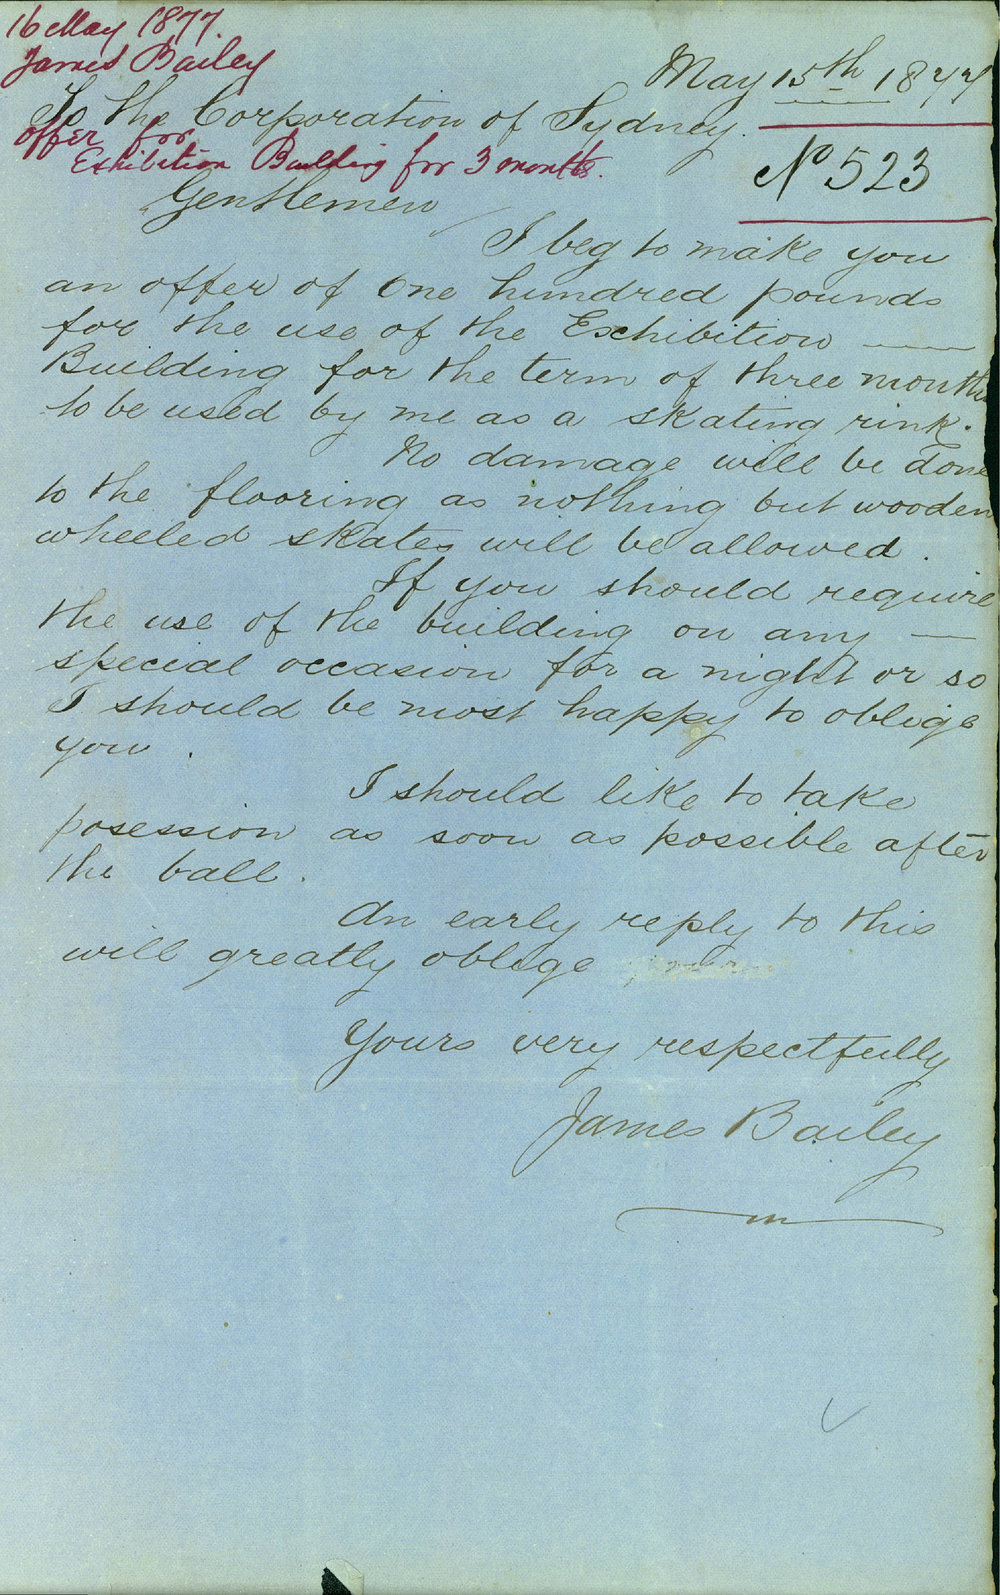 16 May 1877.
James Bailey
May 15th 1877
To the Corporation of Sydney.
offer for
Exhibition Building for 3 months.
No 523
Gentlemen
I beg to make you
an offer of One hundred pounds
for the use of the Exhibition
Building for the term of three months
to be used by me as a skating rink.
No damage will be done
to the flooring as nothing but wooden
wheeled skates will be allowed.
If you should require
the use of the building on any
special occasion for a night or so
I should be most happy to oblige
you.
I should like to take
posession as soon as possible after
the ball.
An early reply to this
will greatly oblige
Yours very respectfully
James Bailey